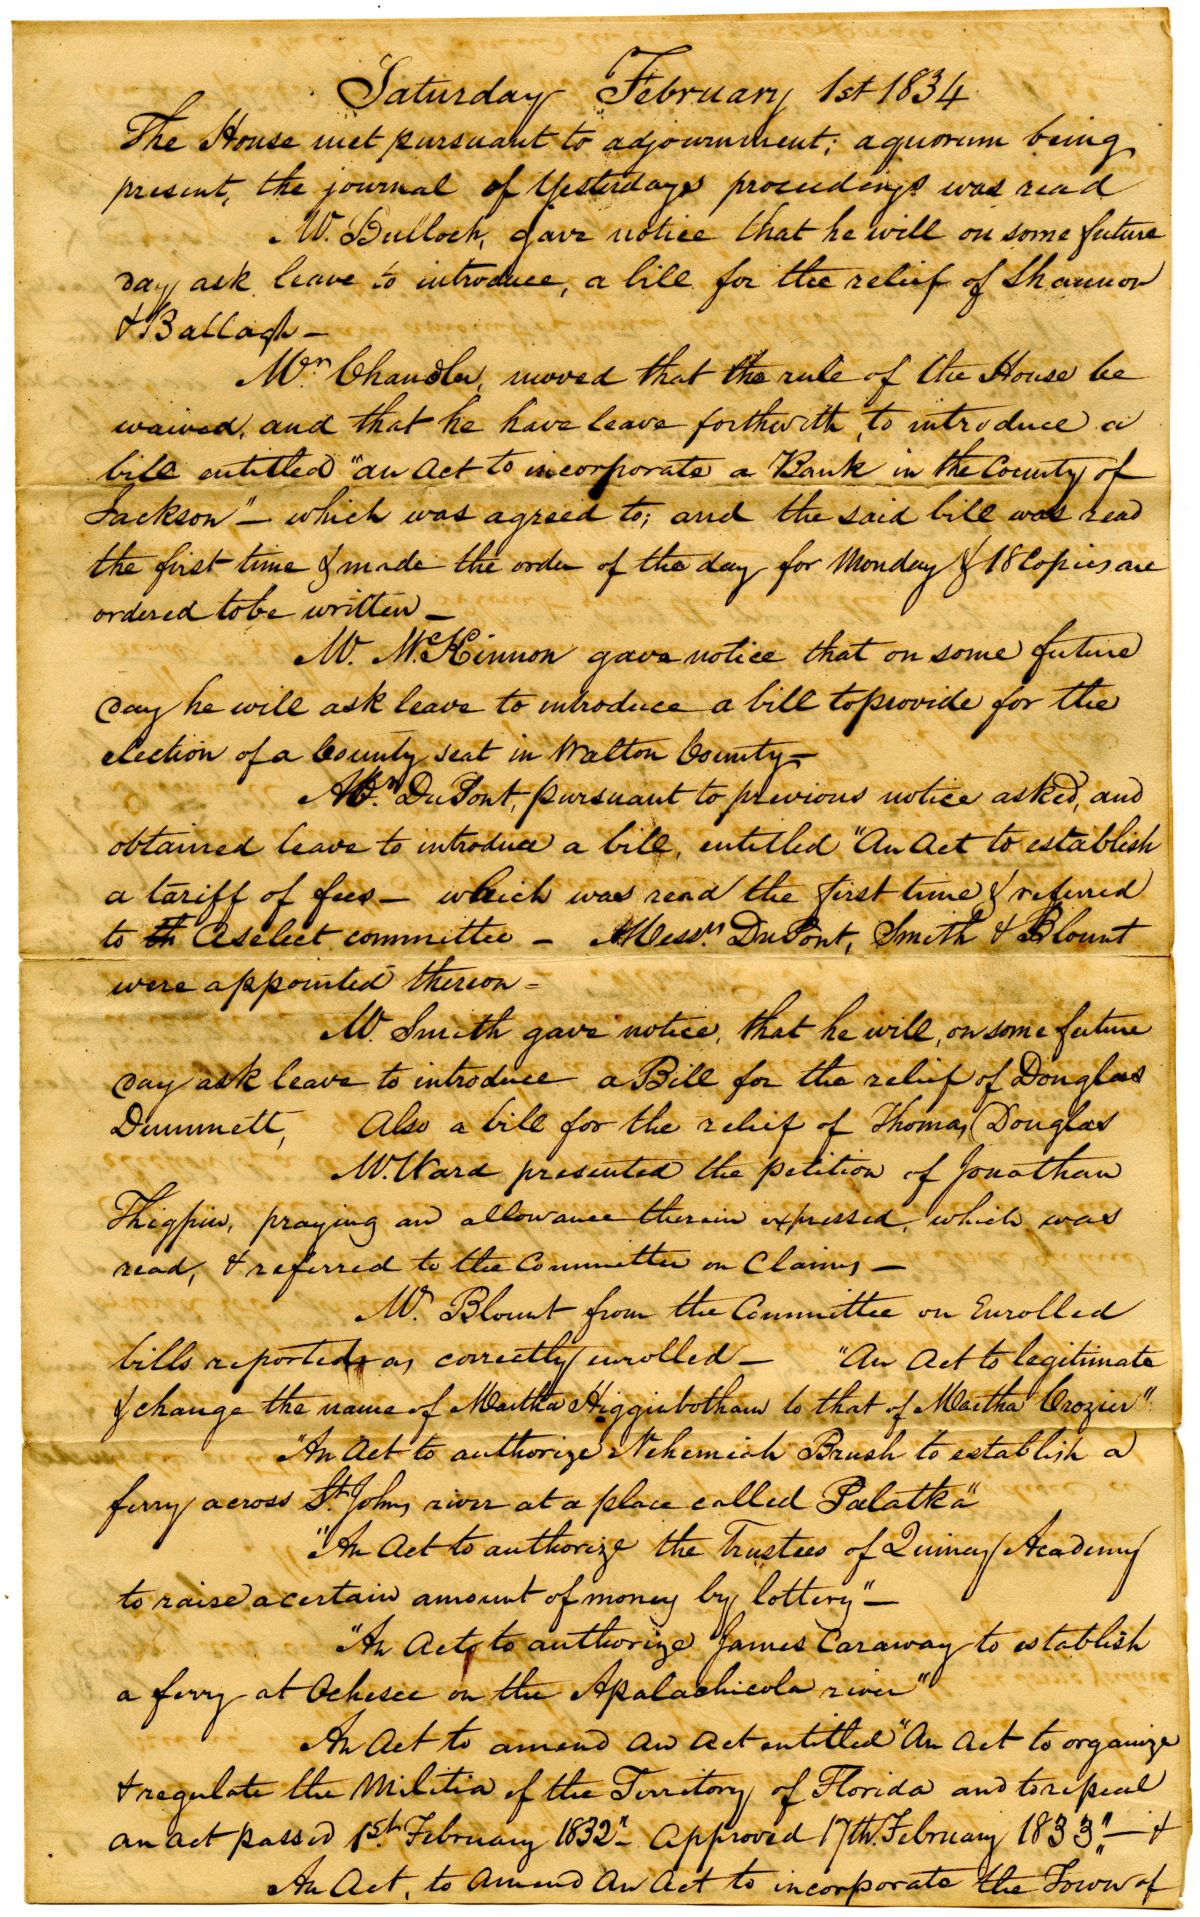 Saturday February 1st 1834
The House met pursuant to adjournment; a quorum being
present, the journal of Yesterdays proceedings was read
Mr. Bulloch, gave notice that he will on some future
day ask leave to introduce, a bill for the relief of Shannon
& Ballagh —
Mr. Chandler, moved that the rule of the House be
waived, and that he have leave forthwith, to introduce a
bill entitled "an Act to incorporate a Bank in the County of
Jackson" — which was agreed to; and the said bill was read
the first time & made the order of the day for Monday & 18 Copies are
ordered to be written —
Mr. McKinnon gave notice that on some future
day he will ask leave to introduce a bill to provide for the
election of a County seat in Walton County —
Mr. DuPont, pursuant to previous notice asked, and
obtained leave to introduce a bill, entitled "An Act to establish
a tariff of fees — which was read the first time & referred
to th a select committee — Messrs. DuPont, Smith & Blount
were appointed thereon =
Mr. Smith gave notice, that he will, on some future
day ask leave to introduce a Bill for the relief of Douglas
Dummett, Also a bill for the relief of Thomas Douglas
Mr. Ward presented the petition of Jonathan
Thigpin, praying an allowance therein expressed, which was
read, & referred to the Committee on Claims —
Mr. Blount from the Committee on Enrolled
bills reported as correctly enrolled — "An Act to legitimate
& change the name of Martha Higginbotham to that of Martha Crozier"
"An Act to authorize Nehemiah Brush to establish a
ferry across St. Johns river at a place called Palatka"
"An Act to authorize the Trustees of Quincy Academy
to raise a certain amount of money by lottery" —
"An Act to authorize James Caraway to establish
a ferry at Ochesee on the Apalachicola river"
An Act to amend an act entitled "An Act to organize
& regulate the Militia of the Territory of Florida and to repeal
an act passed 1st. February 1832" — Approved 17th. February 1833" — &
An Act, to amend an Act to incorporate the Town of